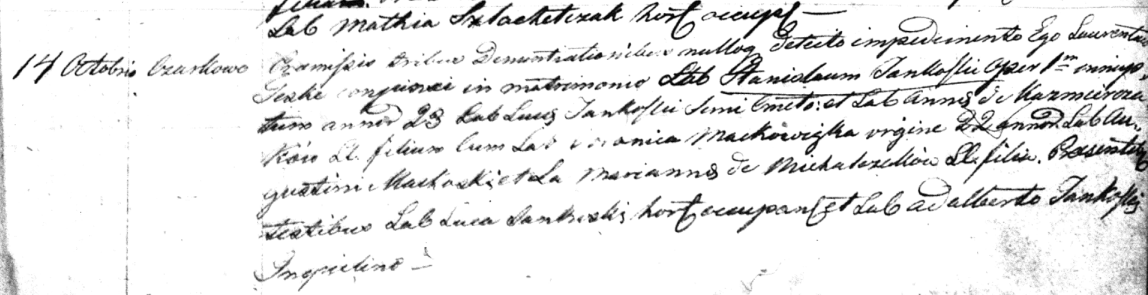 Lab Mathia Szlachetczak hort occups —
14 Octobris Czarkowo Praemissis tribus Denuntiationibus nulloq detecto impedimento Ego Laurentius
conjunxi in matrimonio Lab Stanislaum Jankoskii Oper 1m conjuga
tum annor 23 Lab Lucę Jankoskii Semi Cmeto: et Lab Annę de Kazmiercza
ków Ll. filium Cum Lab Mackowizka virgine 22 annor Lab Au,
gustini Markoski et La Mariannę de Michalczków Ll. filia. Praesentib
testibus Lab Luca Jankoskii hort occupan et Lab Adalberto Jankoskii
Inquilino —